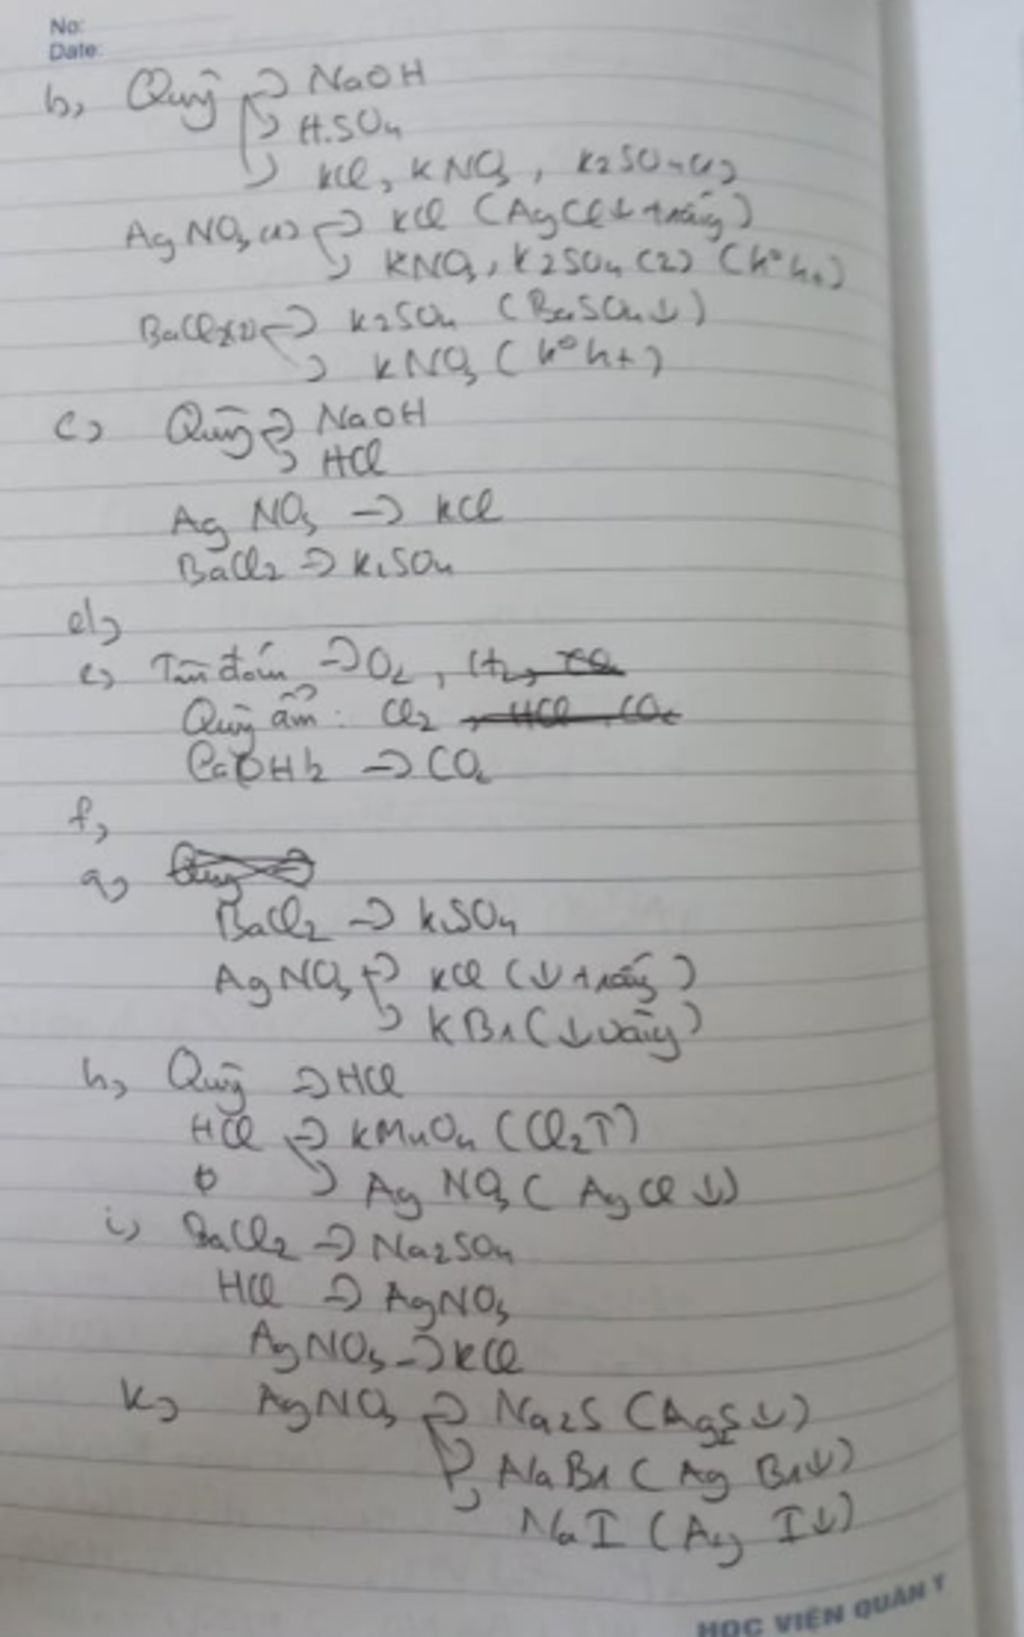 No:
Date:
b, Quỳ → NaOH
→ H2SO4
→ KCl, KNO3, K2SO4 (1)
AgNO3 (1) → KCl (AgCl↓ trắng)
→ KNO3, K2SO4 (2) (k° ht)
BaCl2 (2) → K2SO4 (BaSO4↓)
→ KNO3 (k° ht)
c, Quỳ → NaOH
→ HCl
AgNO3 → KCl
BaCl2 → K2SO4
d,
e, Tàn đóm → O2, H2,
Quỳ ẩm: Cl2, HCl, CO2
Ca(OH)2 → CO2
f,
g, Quỳ
BaCl2 → K2SO4
AgNO3 → KCl (↓ trắng)
→ KBr (↓ vàng)
h, Quỳ → HCl
HCl → KMnO4 (Cl2↑)
→ AgNO3 (AgCl↓)
i, BaCl2 → Na2SO4
HCl → AgNO3
AgNO3 → KCl
k, AgNO3 → Na2S (Ag2S↓)
→ NaBr (AgBr↓)
→ NaI (AgI↓)
HỌC VIỆN QUÂN Y